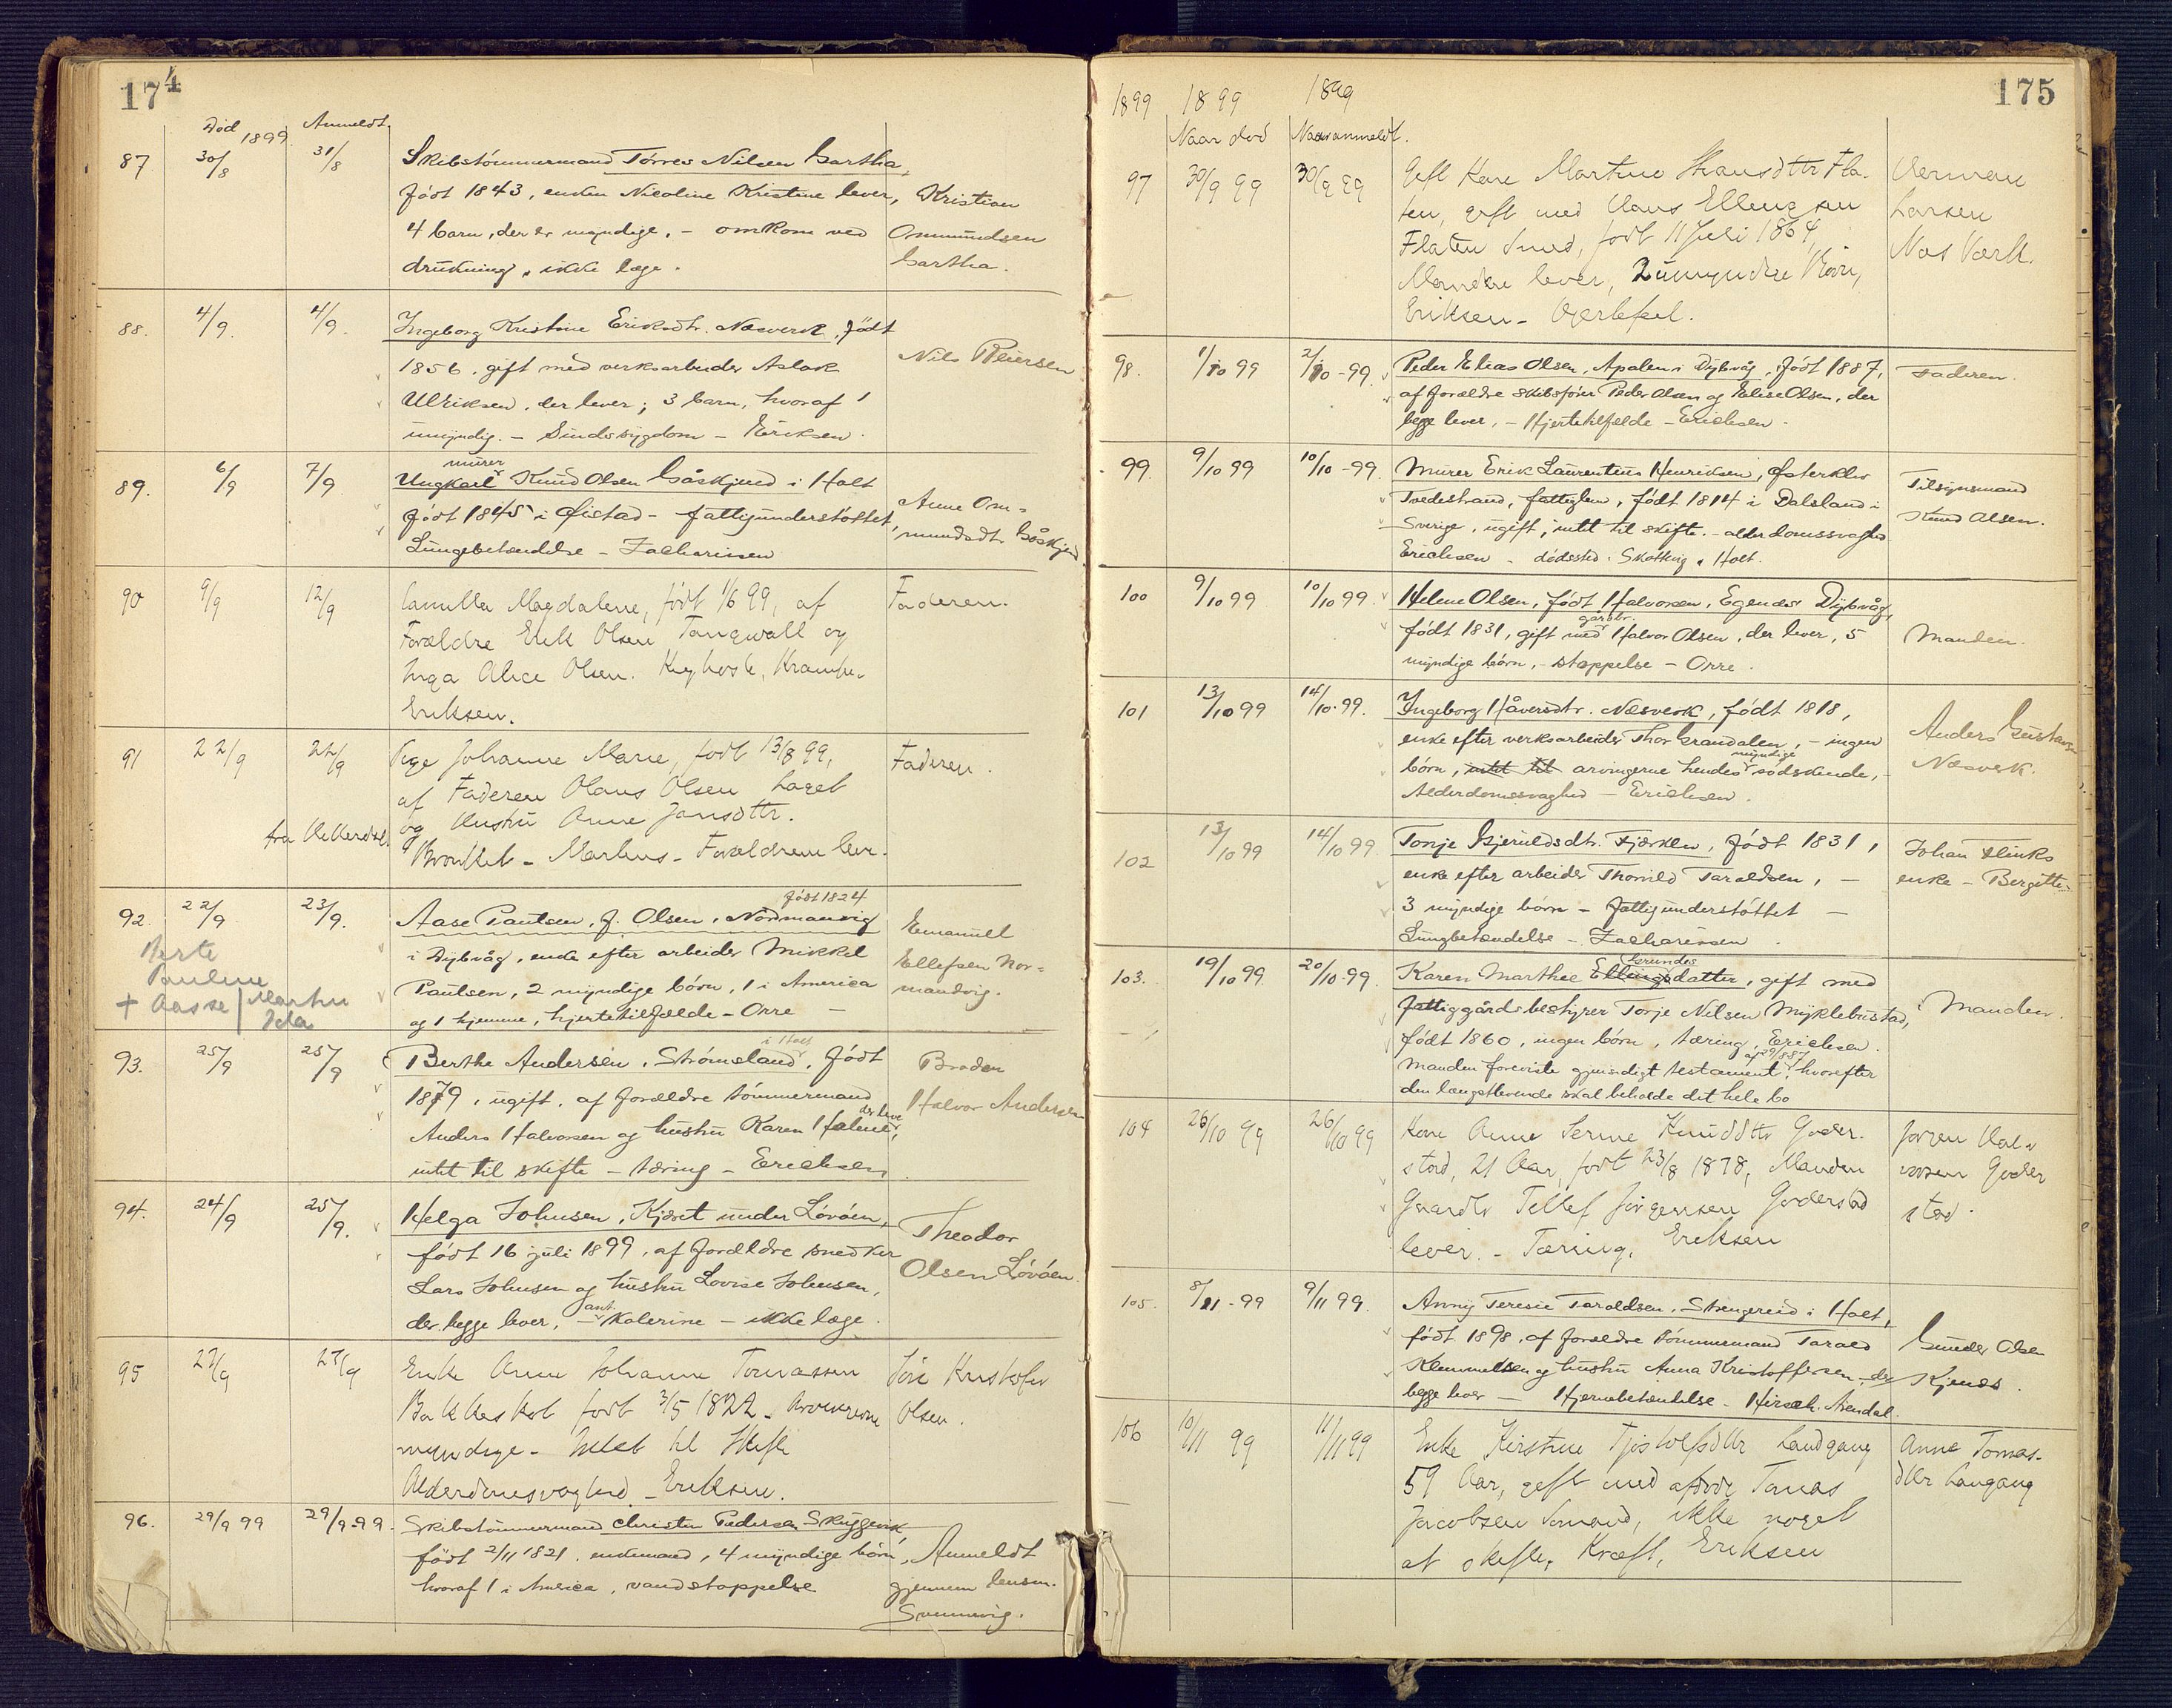 174
Død 1899 Anmeldt.
87. 30/8 31/8 Skibstømmermand Tørres Nilsen Gartha,
født 1843, enken Nicoline Kristine lever, Kristian
4 barn, der er myndige. – omkom ved Ommundsen
drukning, ikke læge. Gartha.
88. 4/9. 4/9. Ingeborg Kristine Eriksdtr. Næsverk, født
1856, gift med verksarbeider Aslak Nils Reiersen
Ulriksen, der lever; 3 barn, hvoraf 1
umyndig. – Sindssygdom – Eriksen.
murer
89. 6/9 7/9. Ungkarl Knud Olsen Gåskjend i Holt
født 1845 i Øistad – fattigunderstøttet, Anne Om=
Lungebetændelse – Zachariasen mundsdtr.
90 9/9 12/9 Camilla Magdalene, født 1/6 99, af Faderen.
Forældre Erik Olsen Tangwall og
Inga Alice Olsen. Kighoste, Krampe.
Eriksen.
91 22/9 22/9 Pige Johanne Marie, født 13/8 99, Faderen.
af Faderen Olaus Olsen Haget
og Hustru Anne Jansdttr.
Bronkit – Martens – Forældrene lever.
født 1824
92. 22/9 23/9. Aase Paulsen, f. Olsen, Nordmanvig Emanuel
i Dybvåg, enke efter arbeider Mikkel Ellefsen Nor=
Paulsen, 2 myndige børn, 1 i America mandvig.
og 1 hjemme, hjertetilfælde – Orre –
Berte
Pauline
+ Aasse | Marthe
Ida
i Holt
93. 25/9 25/9 Berthe Andersen, Strømsland, født Broder
1879, ugift, af forældre tømmermand Halvor Andersen
der lever
Anders Halvorsen og hustru Karen Halvor,
intet til skifte – tæring – Erichsen
94. 24/9 25/9. Helga Johnsen, Kjæret under Løvåen, Theodor
født 16 juli 1899, af forældre snedker Olsen Løvåen.
Lars Johnsen og hustru Lovise Johnsen,
der begge lever, – ant. Kolerine – ikke læge.
95 27/9 27/9 Enke Anne Johanne Tomassen
Bakkeskot født 3/5 1822. Arvingerne Olsen.
myndige – Intet til Skifte
Alderdomsvaghed – Eriksen.
96. 29/9 99 29/9-99. Skibstømmermand Christen Pedersen Skuggevik,
født 2/11 1821, enkemand, 4 myndige børn, Anmeldt
hvoraf 1 i America, vandstoppelse gjennem lensm.
Svennevig.
175
1899 1899 1899
Naar død Naar anmeldt.
97 30/9 99 30/9 99 Gift Kone Martine Hansdttr Fla- Herman
ten, gift med Claus Ellingsen Larsen
Flaten Smed, født 11 Juli 1864, Næs Værk.
Manden lever, 2 umyndige Børn,
Eriksen –
98. 1/10 99 2/10-99. Peder Elias Olsen, Apalen i Dybvåg, født 1887, Faderen.
af forældre skibsfører Peder Olsen og Elise Olsen, der
begge lever, – Hjertetilfælde – Erichsen.
99. 9/10 99 10/10-99. Murer Erik Laurentius Henriksen, Østerklev Tilsynsmand
Tvedestrand, fattiglem, født 1814 i Dalsland i Knud Olsen.
Sverige, ugift, intet til skifte. – alderdomssvaghed
Erichsen – dødssted: Skotting, Holt.
100 9/10 99 10/10 99. Helene Olsen, født Halvorsen, Egenæs Dybvåg,
gårdbr.
født 1831, gift med Halvor Olsen, der lever, 5 Manden.
myndige børn, – stoppelse – Orre.
101 13/10 99 14/10-99. Ingeborg Håversdtr. Næsverk, født 1818, Anders Gustavsen
enke efter verksarbeider Thor Grandalen, – ingen Næsverk.
myndige
børn, intet til arvingerne hendes sødskende, –
Alderdomssvaghed – Erichsen.
102 13/10 99 14/10 99. Tonje Gjeruldsdtr. Fjærklev, født 1831, Johan Flinks
enke efter arbeider Thorvild Taraldsen, – enke – Bergitte.
3 myndige børn – fattigunderstøttet –
Lungbetændelse – Zachariasen.
Gundes
103. 19/10 99. 20/10-99. Karen Marthee Ellingsdatter, gift med Manden.
fattiggårdsbestyrer Torje Nilsen Myklebustad,
født 1860, ingen børn, tæring, Erichsen.
Manden foreviste gjensidigt testament, hvorefter
den længstlevende skal beholde det hele bo
104 26/10 99 26/10 99 Kone Anne Serine Knudsdttr Goder- Jørgen Hal-
stad, 21 Aar, født 23/8 1878, Manden vorsen Goder
Gaardbr Tellef Jørgensen Goderstad stad.
lever. – Tæring. Eriksen
105. 8/11-99 9/11 99. Anny Teresie Taraldsen, Strengereid i Holt,
født 1898, af forældre tømmermand Tarald Gunder Olsen
Klemmetsen og hustru Anna Kristoffersen, der Kjenes.
begge lever – Hjernebetændelse – Hirsch. Arendal.
106 10/11 99 11/11 99 Enke Kirstine Tjostolfsdttr Landgang Anne Tomas-
59 Aar, gift med afdøde Tomas dttr Langang
Jacobsen Sømand, ikke noget
at skifte. Kræft, Eriksen